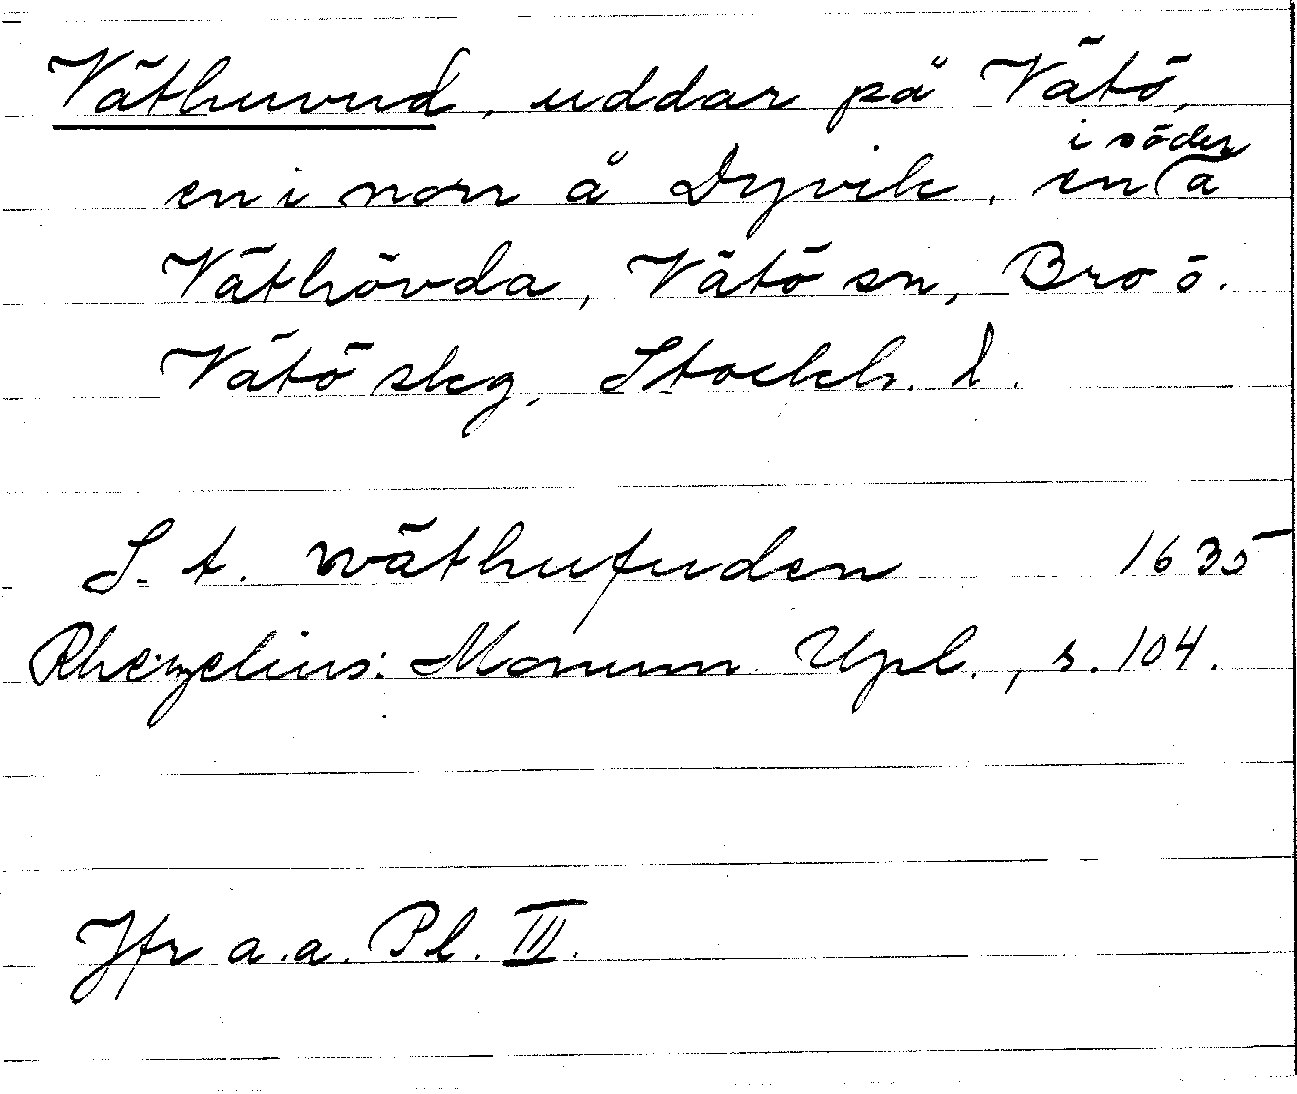 Väthuvud, uddar på Vätö,
en i norr å Dyvik, en i söder å
Väthövda, Vätö sn, Bro o.
Vätö skg, Stockh. l.
S. t. wäthufuden 1635
Rhezelius: Monum Upl., s. 104.
Jfr a.a. Pl. III.